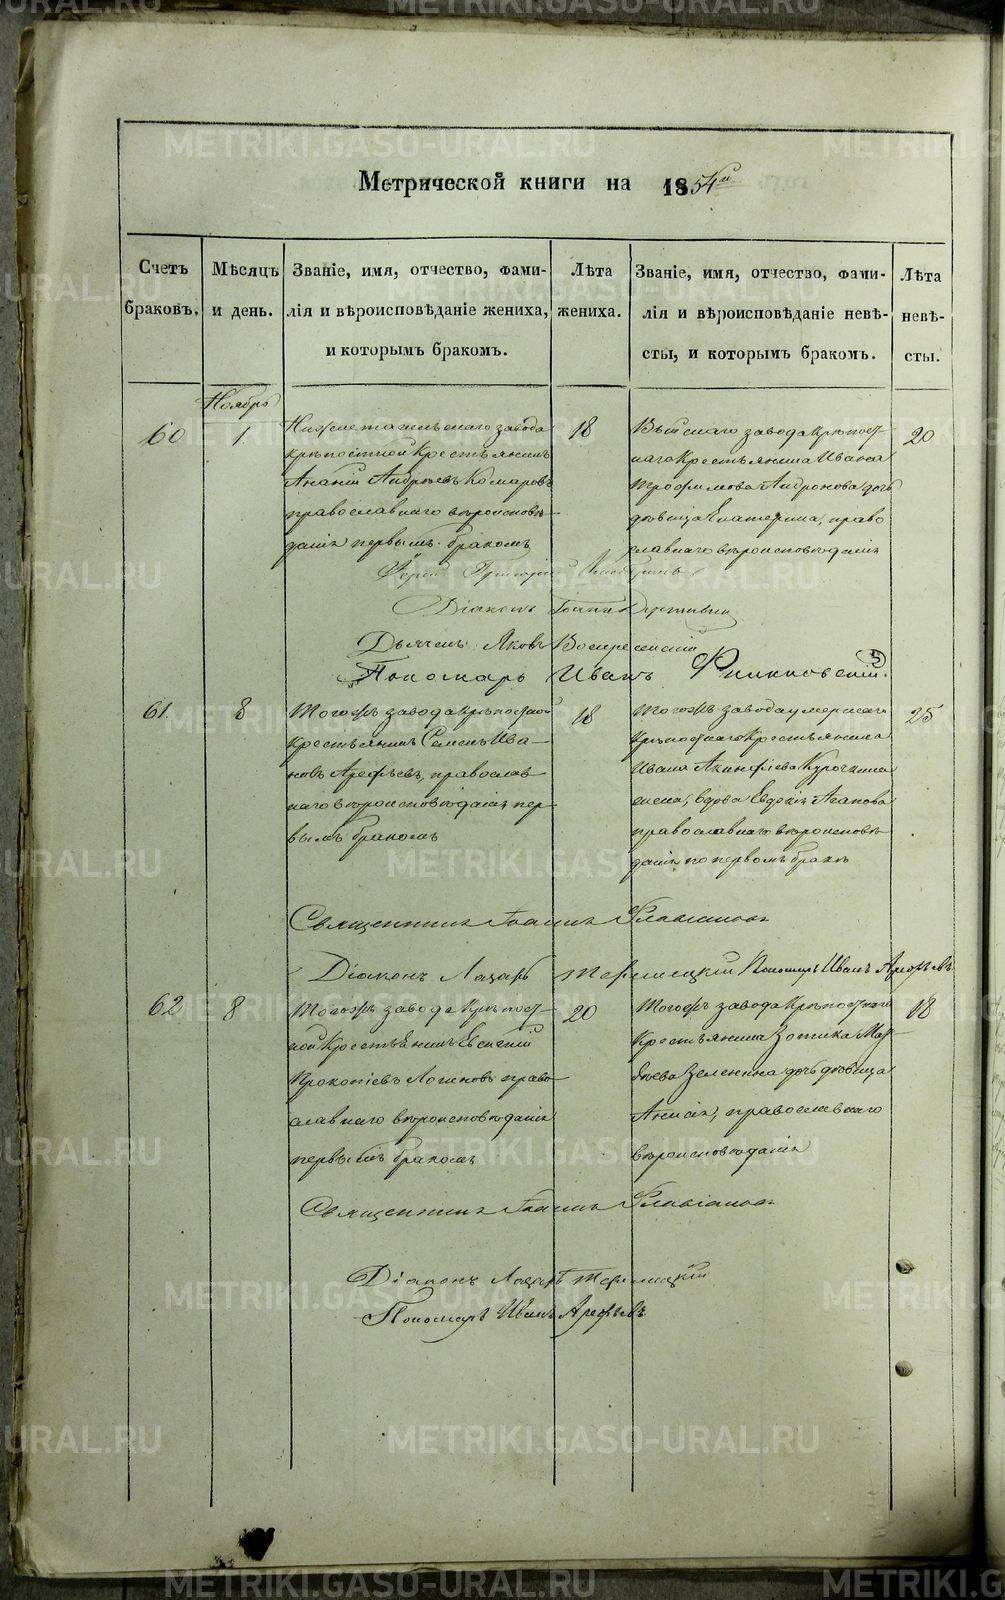 Метрической книги на 1854й
Счетъ браковъ.
Мѣсяцъ и день.
Званіе, имя, отчество, фами-
лія и вѣроисповѣданіе жениха,
и которымъ бракомъ.
Лѣта жениха.
Званіе, имя, отчество, фами-
лія и вѣроисповѣданіе невѣ-
сты, и которымъ бракомъ.
Лѣта невѣ-
сты.
Ноябрь
60
1
Нижнетагильскаго завода
крѣпостной Крестьянинъ
Ананій Андреевъ Комаровъ
православнаго вѣроисповѣ-
данія первымъ бракомъ
18
Выйскаго завода Крѣпост-
наго Крестьянина Ивана
Трофимова Андронова дочь
дѣвица Екатерина, право
славнаго вѣроисповѣданія
20
Іерей Григорій
Діаконъ Іоаннъ
Дьячекъ Яковъ Воскресенскій
Пономарь Иванъ
61
8
Тогожъ завода Крѣпостной
Крестьянинъ Семенъ Ива-
новъ Арефьевъ, православ
наго вѣроисповѣданія пер-
вымъ бракомъ
18
Тогожъ завода умершаго
Крѣпостнаго Крестьянина
Ивана Акинфіева Курочкина
жена, вдова Евдокія Агапова
православнаго вѣроисповѣ
данія по первомъ бракѣ
25
Священникъ Іоаннъ Флавіановъ
Діаконъ Лазарь Пономарь Иванъ Арефьевъ
62
8
Тогожъ завода Крѣпост-
ной Крестьянинъ Евсегній
Прокопіевъ Логиновъ право-
славнаго вѣроисповѣданія
первымъ бракомъ
20
Тогожъ завода Крѣпостнаго
Крестьянина Зотика Мат-
вѣева Зеленина дочь дѣвица
Анисія, православнаго
вѣроисповѣданія
18
Священникъ Іоаннъ Флавіановъ
Діаконъ Лазарь
Пономарь Иванъ Арефьевъ
METRIKI.GASO-URAL.RU